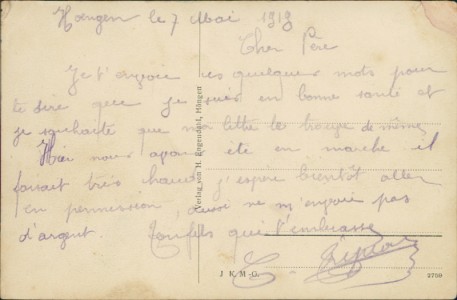 Hoengen le 7 Mai 1919
Cher Père
Je t'envoie ces quelques mots pour
te dire que je suis en bonne santé et
je souhaite que ma lettre te trouve de même,
Hier nous avons été en marche il
faisait très chaud, j'espère bientôt aller
en permission, aussi ne m'envoie pas
d'argent. Ton fils qui t'embrasse
Verlag von H. Hogendorf, Höngen
J K M-G.
2750